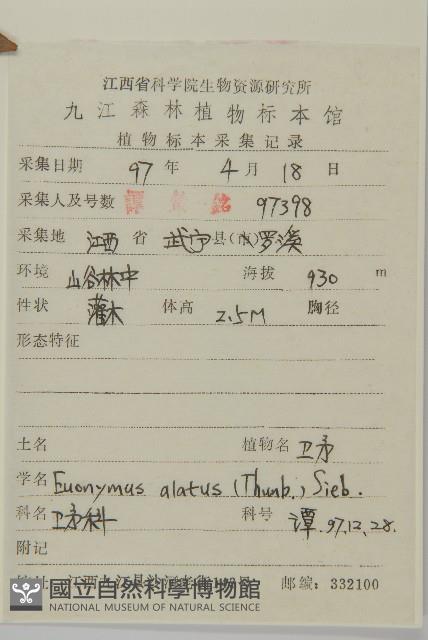 江西省科学院生物资源研究所
九江森林植物标本馆
植物标本采集记录
采集日期 97 年 4 月 18 日
采集人及号数 譚 策 銘 97398
采集地 江西 省 武宁 县(市) 罗溪
环境 山谷林中 海拔 930 m
性状 灌木 体高 2.5M 胸径
形态特征
土名 植物名 卫矛
学名 Euonymus alatus (Thunb.) Sieb.
科名 卫矛科 科号 谭.97.12.28.
附记
江西九江县沙河 邮编: 332100
國立自然科學博物館
NATIONAL MUSEUM OF NATURAL SCIENCE